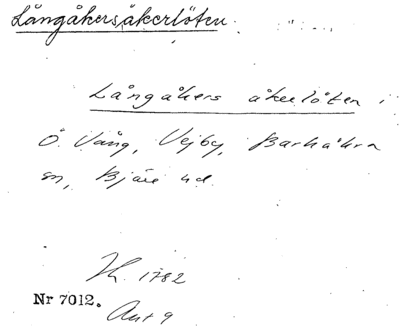 Långåkersåkerlöten
Långåkers åkerlöten i
Ö. Vång, Vejby, Barkåkra
sn, Bjäre hd.
Kh. 1782
Nr 7012.
Akt 9